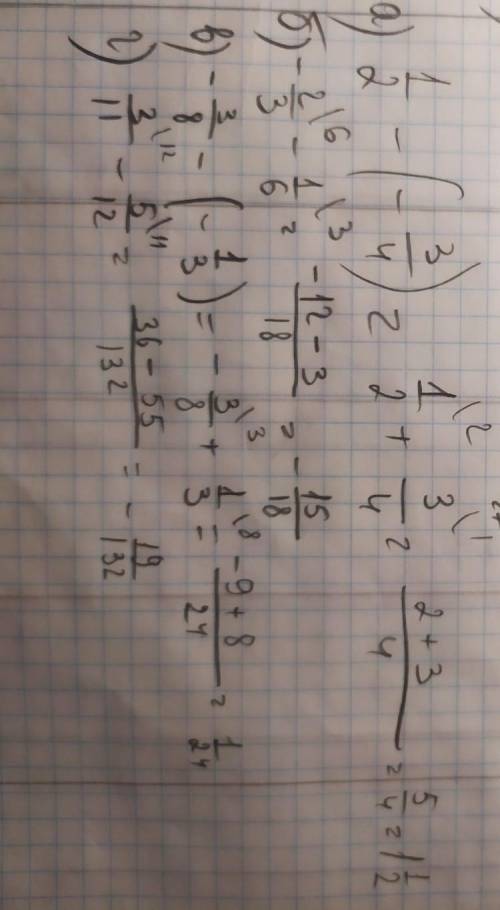 а) 1/2 - (- 3/4) = 1\2/2 + 3\1/4 = 2+3/4 = 5/4 = 1 1/2
б) - 2\6/3 - 1\3/6 = -12-3/18 = - 15/18
в) - 3/8 - (- 1/3) = - 3\3/8 + 1\8/3 = -9+8/24 = 1/24
г) 3\12/11 - 5\11/12 = 36-55/132 = - 19/132